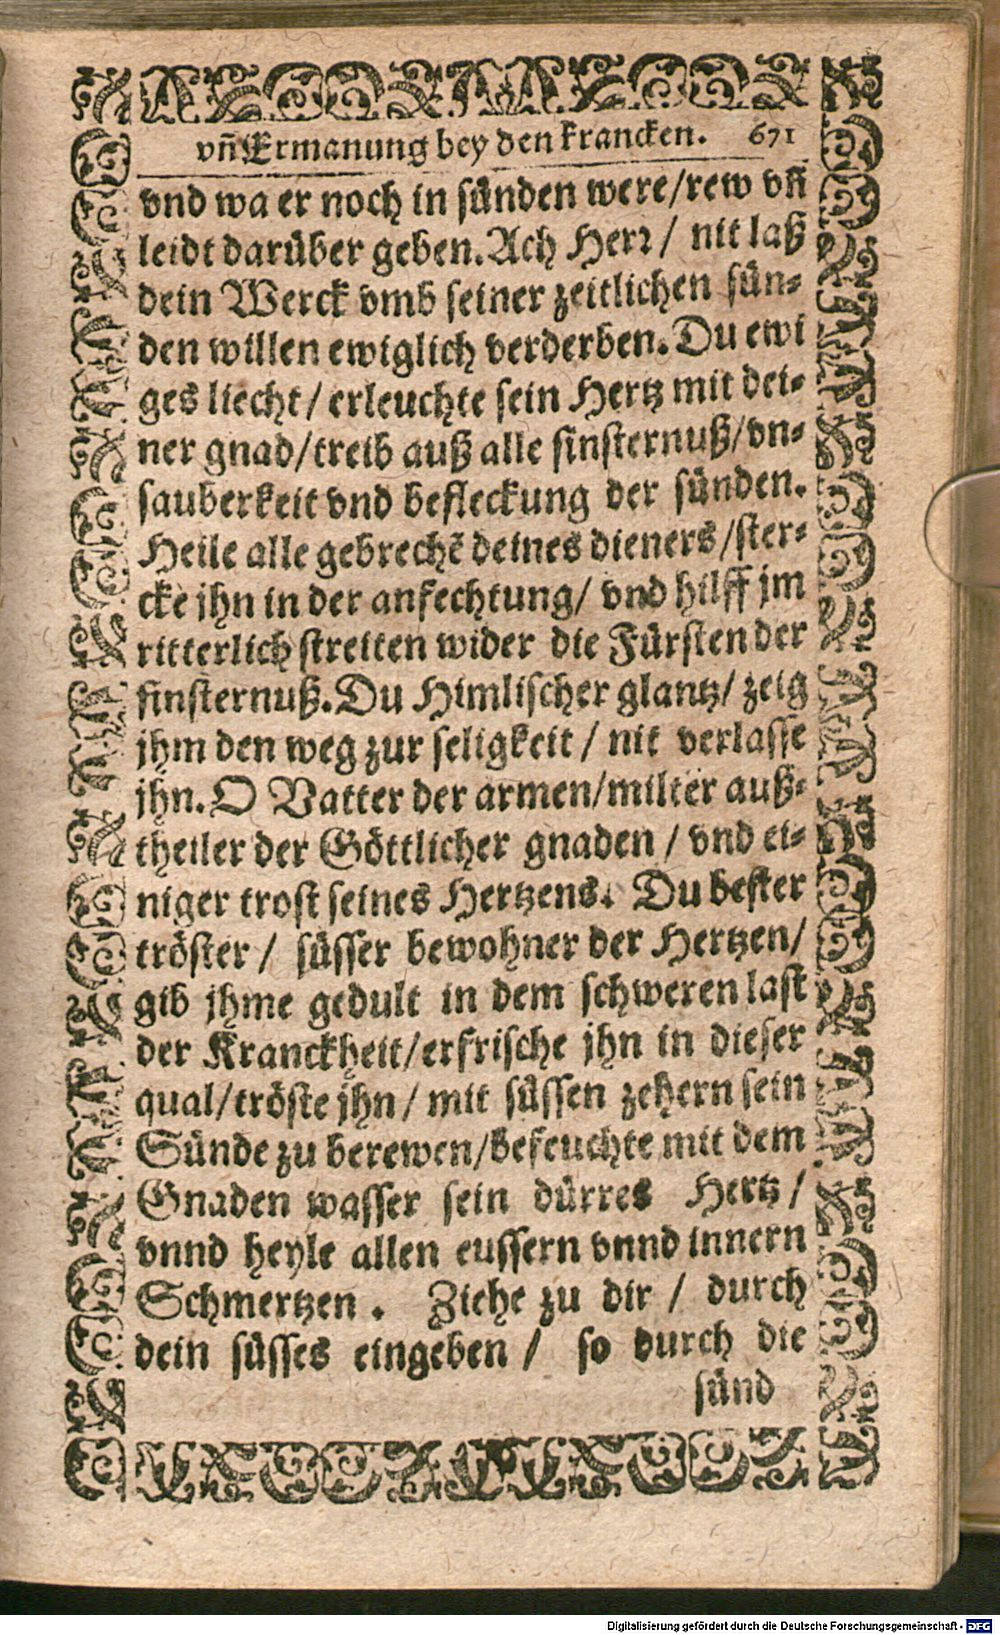 vñ Ermanung bey den krancken. 671
vnd wa er noch in sünden were/rew vñ
leidt darüber geben. Ach Herr / nit laß
dein Werck vmb seiner zeitlichen sün-
den willen ewiglich verderben. Du ewi
ges liecht / erleuchte sein Hertz mit dei-
ner gnad/treib auß alle finsternuß/vn-
sauberkeit vnd befleckung der sünden.
Heile alle gebrechẽ deines dieners /ster-
cke jhn in der anfechtung/ vnd hilff jm
ritterlich streiten wider die Fürsten der
finsternuß. Du Himlischer glantz/ zeig
jhm den weg zur seligkeit / nit verlasse
jhn. O Vatter der armen/milter auß-
theiler der Göttlicher gnaden / vnd ei-
niger trost seines Hertzens. Du bester
tröster / süsser bewohner der Hertzen/
gib jhme gedult in dem schweren last
der Kranckheit/erfrische jhn in dieser
qual/tröste jhn / mit süssen zehern sein
Sünde zu berewen/befeuchte mit dem
Gnaden wasser sein dürres Hertz /
vnnd heyle allen eussern vnnd innern
Schmertzen . Ziehe zu dir / durch
dein süsses eingeben / so durch die
sünd
Digitalisierung gefördert durch die Deutsche Forschungsgemeinschaft - DFG